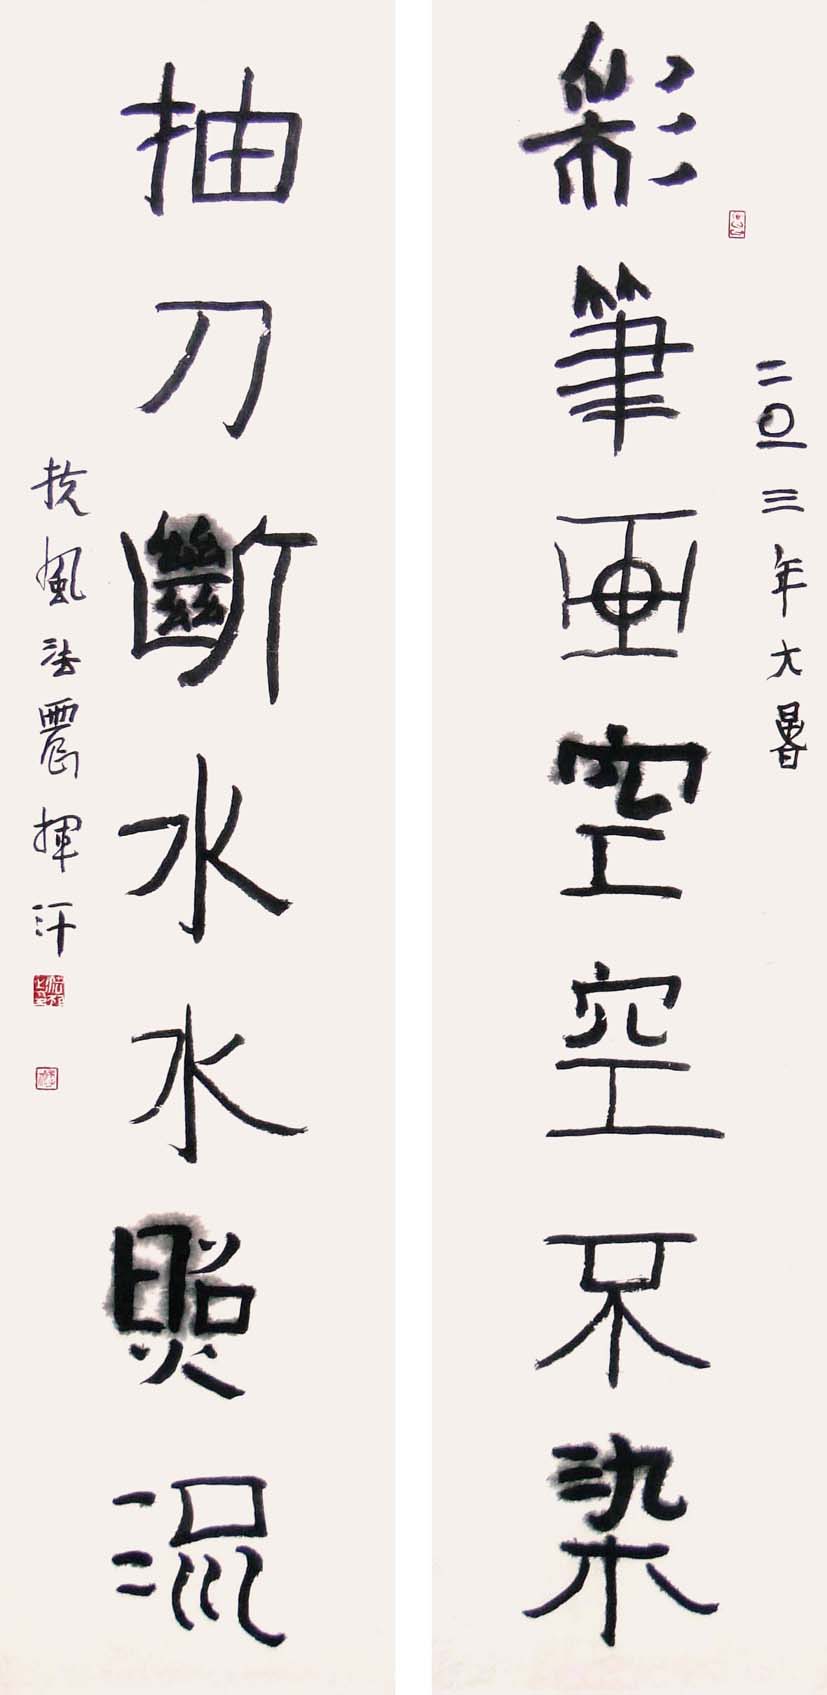 彩筆画空空不染
二〇一三年大暑
抽刀斷水水照流
扶風法震揮汗